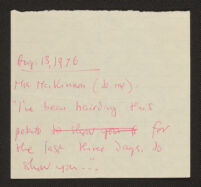 Aug. 13, 1976
Mrs McKinnon (to me).
"I've been hairding this
potato to show you for
the last three days. To
show you..."